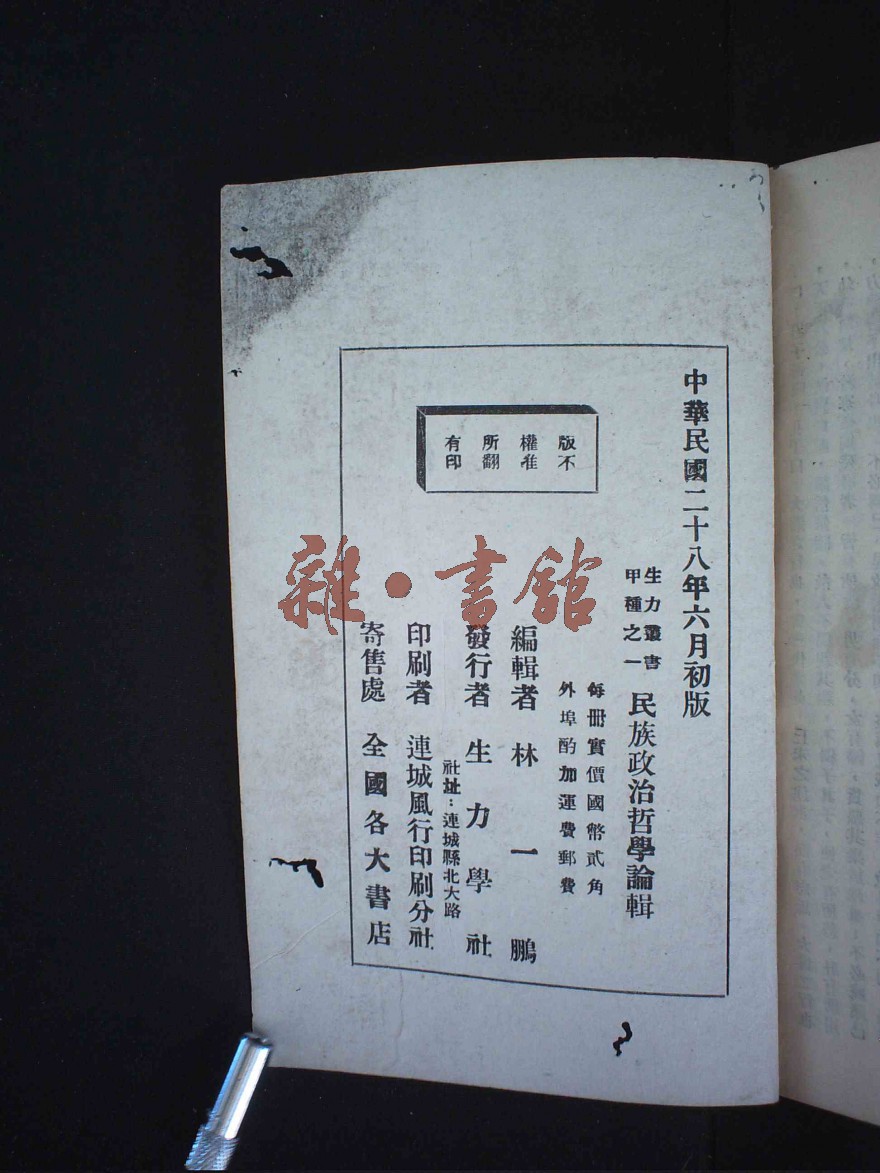 中華民國二十八年六月初版
生力叢書
甲種之一
民族政治哲學論輯
每冊實價國幣貳角
外埠酌加運費郵費
版權所有
不准翻印
編輯者 林一鵬
發行者 生力學社
社址：連城縣北大路
印刷者 連城風行印刷分社
寄售處 全國各大書店
雜·書館